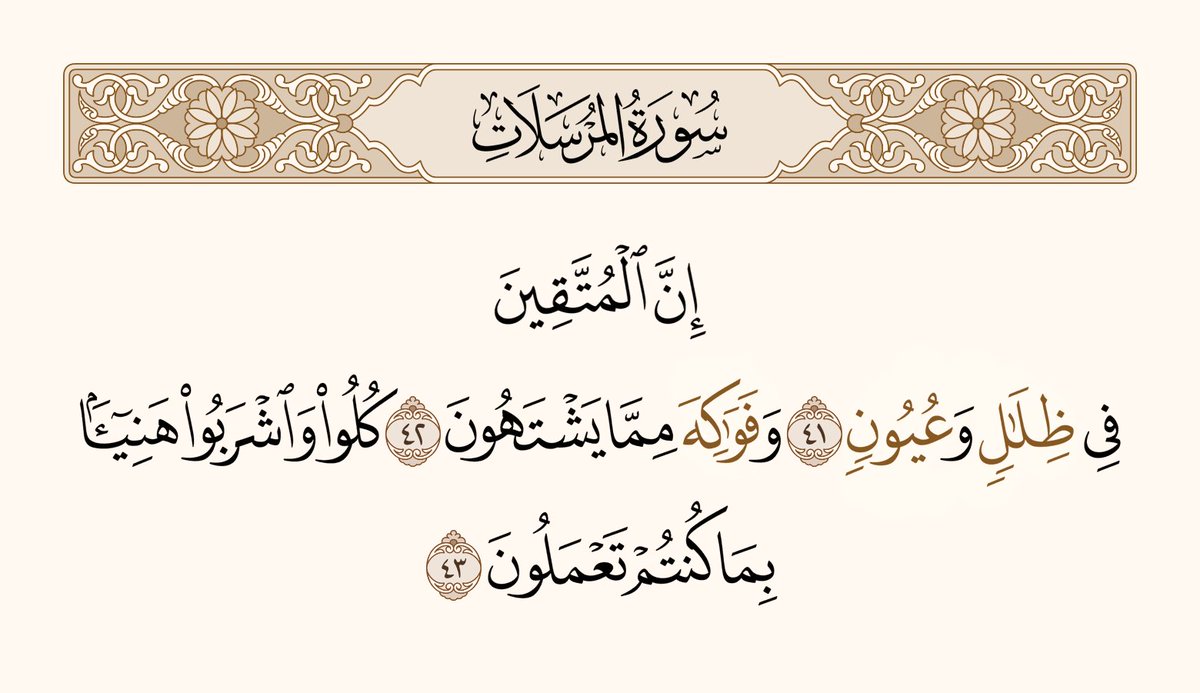 سُورَةُ المُرۡسَلَاتِ
إِنَّ ٱلۡمُتَّقِينَ
فِي ظِلَٰلٖ وَعُيُونٖ ٤١ وَفَوَٰكِهَ مِمَّا يَشۡتَهُونَ ٤٢ كُلُواْ وَٱشۡرَبُواْ هَنِيٓـَٔۢا
بِمَا كُنتُمۡ تَعۡمَلُونَ ٤٣